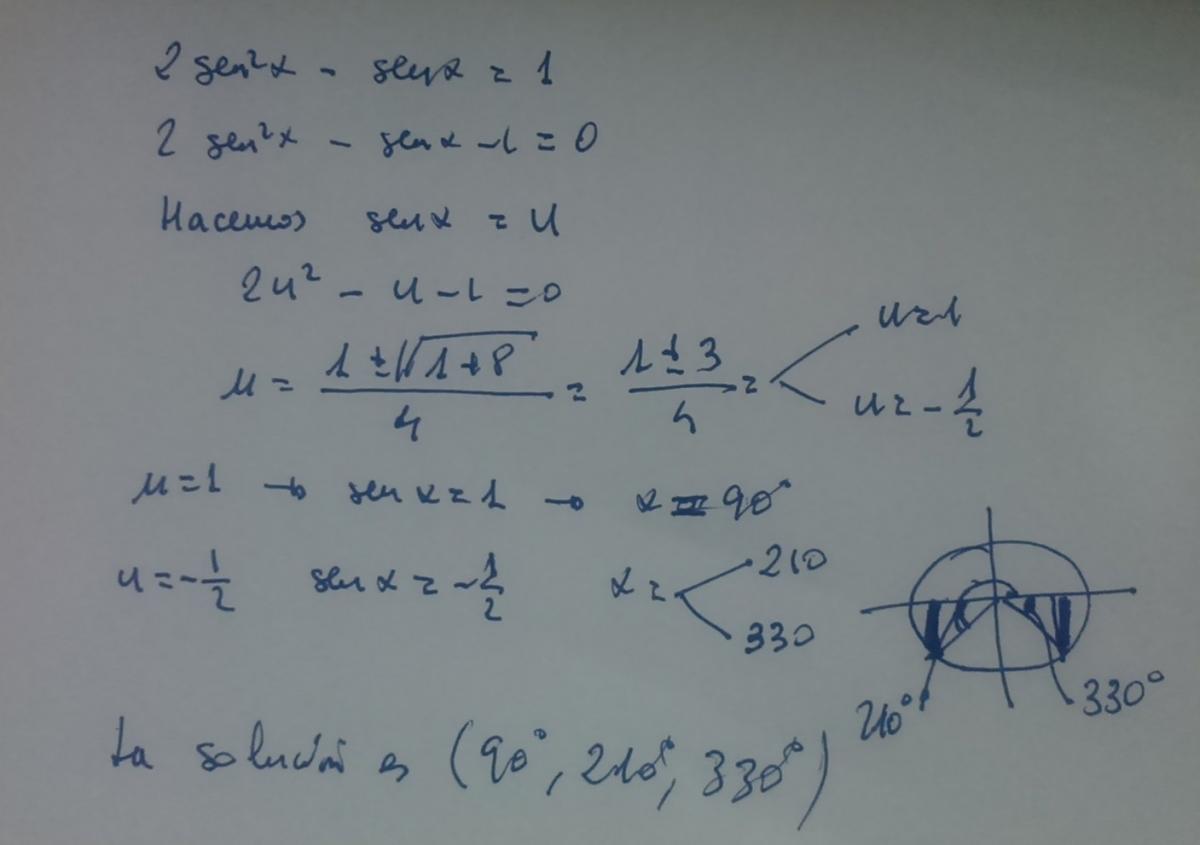 2 sen²x - senx = 1
2 sen²x - senx - 1 = 0
Hacemos senx = u
2u² - u - 1 = 0
u = (1 ± √(1+8))/4 = (1 ± 3)/4 = u = 1
u = -1/2
u = 1 → senx = 1 → x = 90°
u = -1/2 senx = -1/2 x = 210
330
210° 330°
La solución es (90°, 210°, 330°)